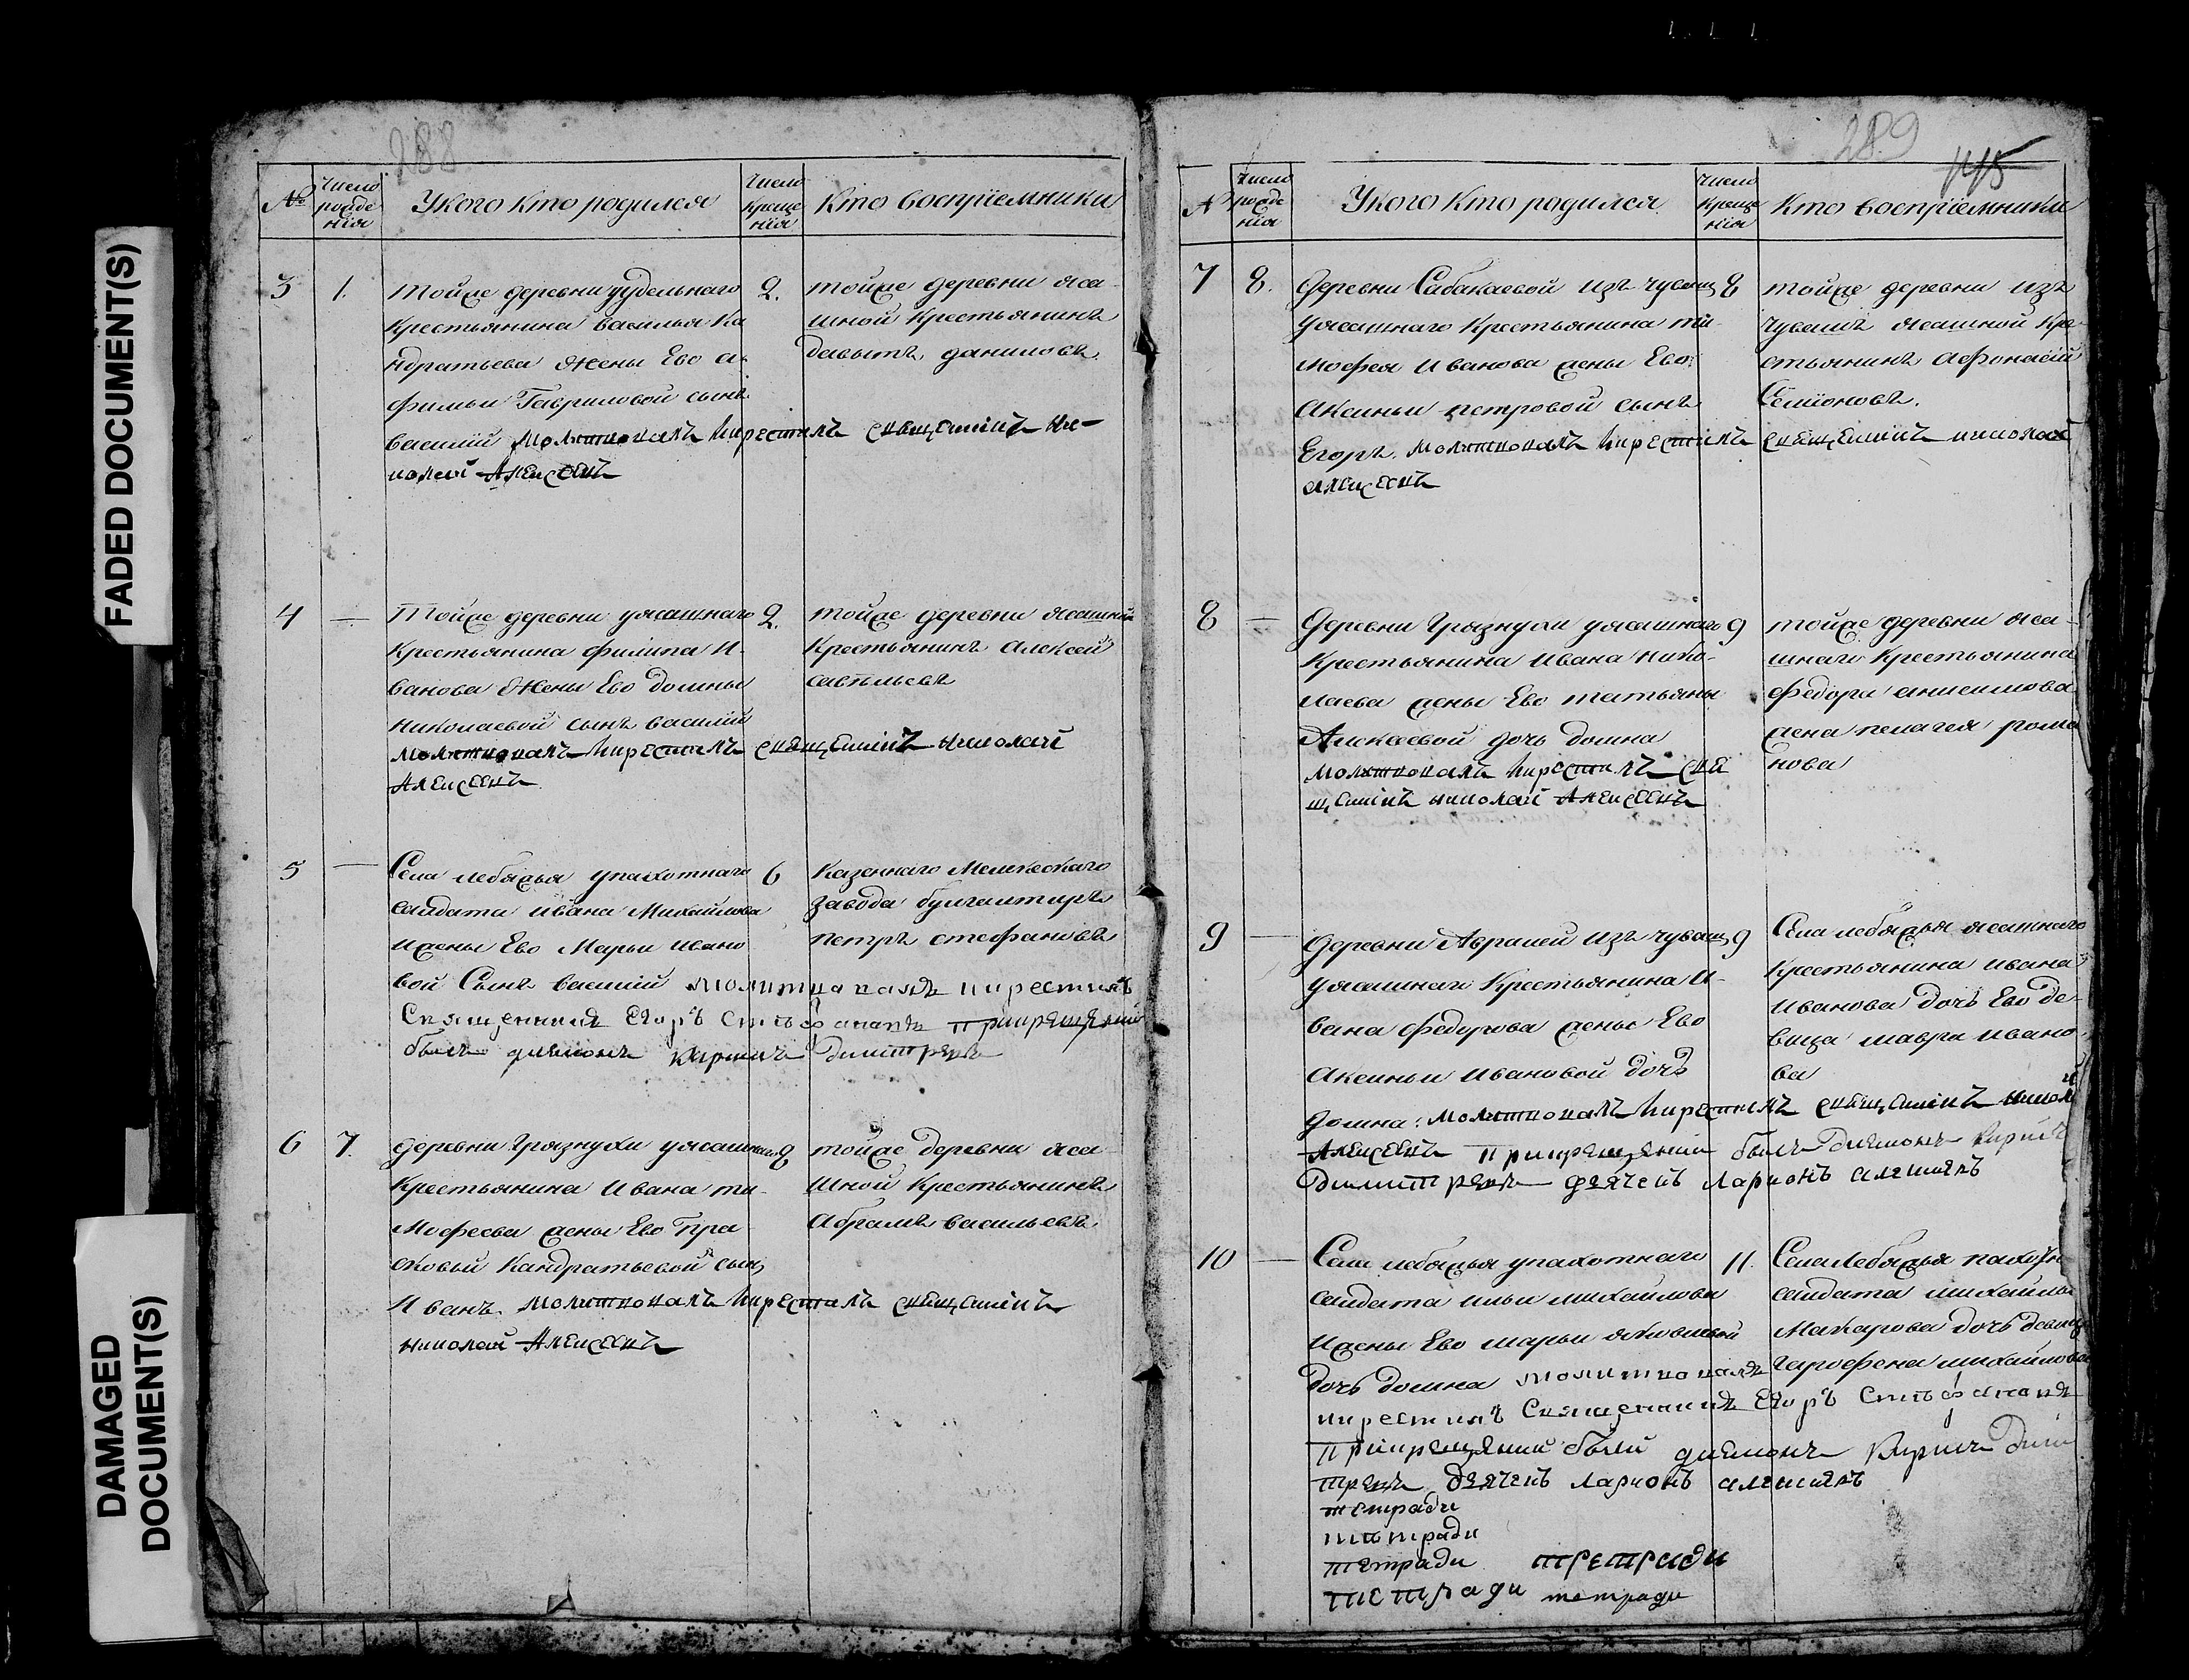 FADED DOCUMENT(S)
DAMAGED
DOCUMENT(S)
288
№
Число
рожде
нія
У кого кто родился
Число
креще
нія
Кто воспріемники
3
1.
тойже деревни уудельнаго
крестьянина василья Ка
ндратьева жены Ево а-
фимьи Гавриловой сынъ
василій молитвовалъ икрестилъ священникъ Ни-
колай Алексеевъ
2.
тойже деревни яса-
шной крестьянинъ
давытъ даниловъ
4
—
Тойже деревни уясашнаго
крестьянина филипа И-
ванова жены Ево домны
николаевой сынъ василій
молитвовалъ икрестилъ священникъ николай
Алексеевъ
2.
тойже деревни ясашной
крестьянинъ алексей
савѣльевъ
5
—
Села лебяжья упахотнаго
салдата ивана Михайлова
ижены Ево Марьи ивано
вой Сынъ василій молитвовалъ икрестилъ
Священникъ Егоръ Стефановъ прикрещеніи
былъ диаконъ Кирилъ димитревъ
6
казеннаго Мелекескаго
завода булгалтиръ
петръ стефановъ
6
7.
деревни грязнухи уясашнаго
крестьянина Ивана ти-
мофеева жены Ево Пра
сковьи Кандратьевой сынъ
Иванъ. молитвовалъ икрестилъ священникъ
николай Алексеевъ
8
тойже деревни яса
шной крестьянинъ
абрамъ васильевъ
289
№
Число
рожде
нія
У кого кто родился
Число
креще
нія
Кто воспріемники
7
8.
деревни Сабакаевой изъ чувашъ
уясашнаго крестьянина ти-
мофея Иванова жены Ево
Аксиньи петровой сынъ
Егоръ. молитвовалъ икрестилъ священникъ николай
алексеевъ
8
тойже деревни изъ
чувашъ ясашной кре-
стьянинъ афонасій
Семіоновъ.
8
—
деревни грязнухи уясашнаго
крестьянина ивана нико-
лаева жены Ево татьяны
Алексеевой дочь домна
молитвовалъ икрестилъ свя
щенникъ николай Алексеевъ
9
тойже деревни яса-
шнаго крестьянина
федора анисимова
жена пелагея рома
нова
9
—
деревни Авралей изъ чувашъ
уясашнаго крестьянина И-
вана федорова жены Ево
аксиньи Ивановой дочь
домна: молитвовалъ икрестилъ священникъ николай
Алексеевъ прикрещеніи былъ диаконъ Кирилъ
димитревъ дьячекъ Ларионъ
9
Села лебяжья ясашнаго
крестьянина ивана
иванова дочь Ево де-
вица мавра ивано-
ва
10
—
Села лебяжья упахотнаго
салдата ильи михайлова
ижены Ево марьи яковлевой
дочь домна молитвовалъ
икрестилъ Священникъ Егоръ Стефановъ
прикрещеніи были диаконъ Кирилъ дими
тревъ дьячекъ Ларионъ
11.
Села Лебяжья пахотн
салдата михайлы
Макарова дочь девица
михайлова
тетради
тетради
тетради третради
тетради тетради